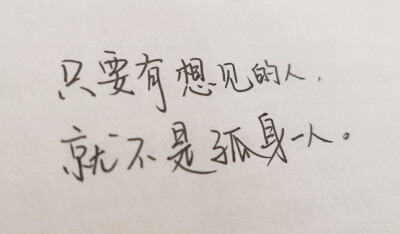 只要有想见的人，
就不是孤身一人。